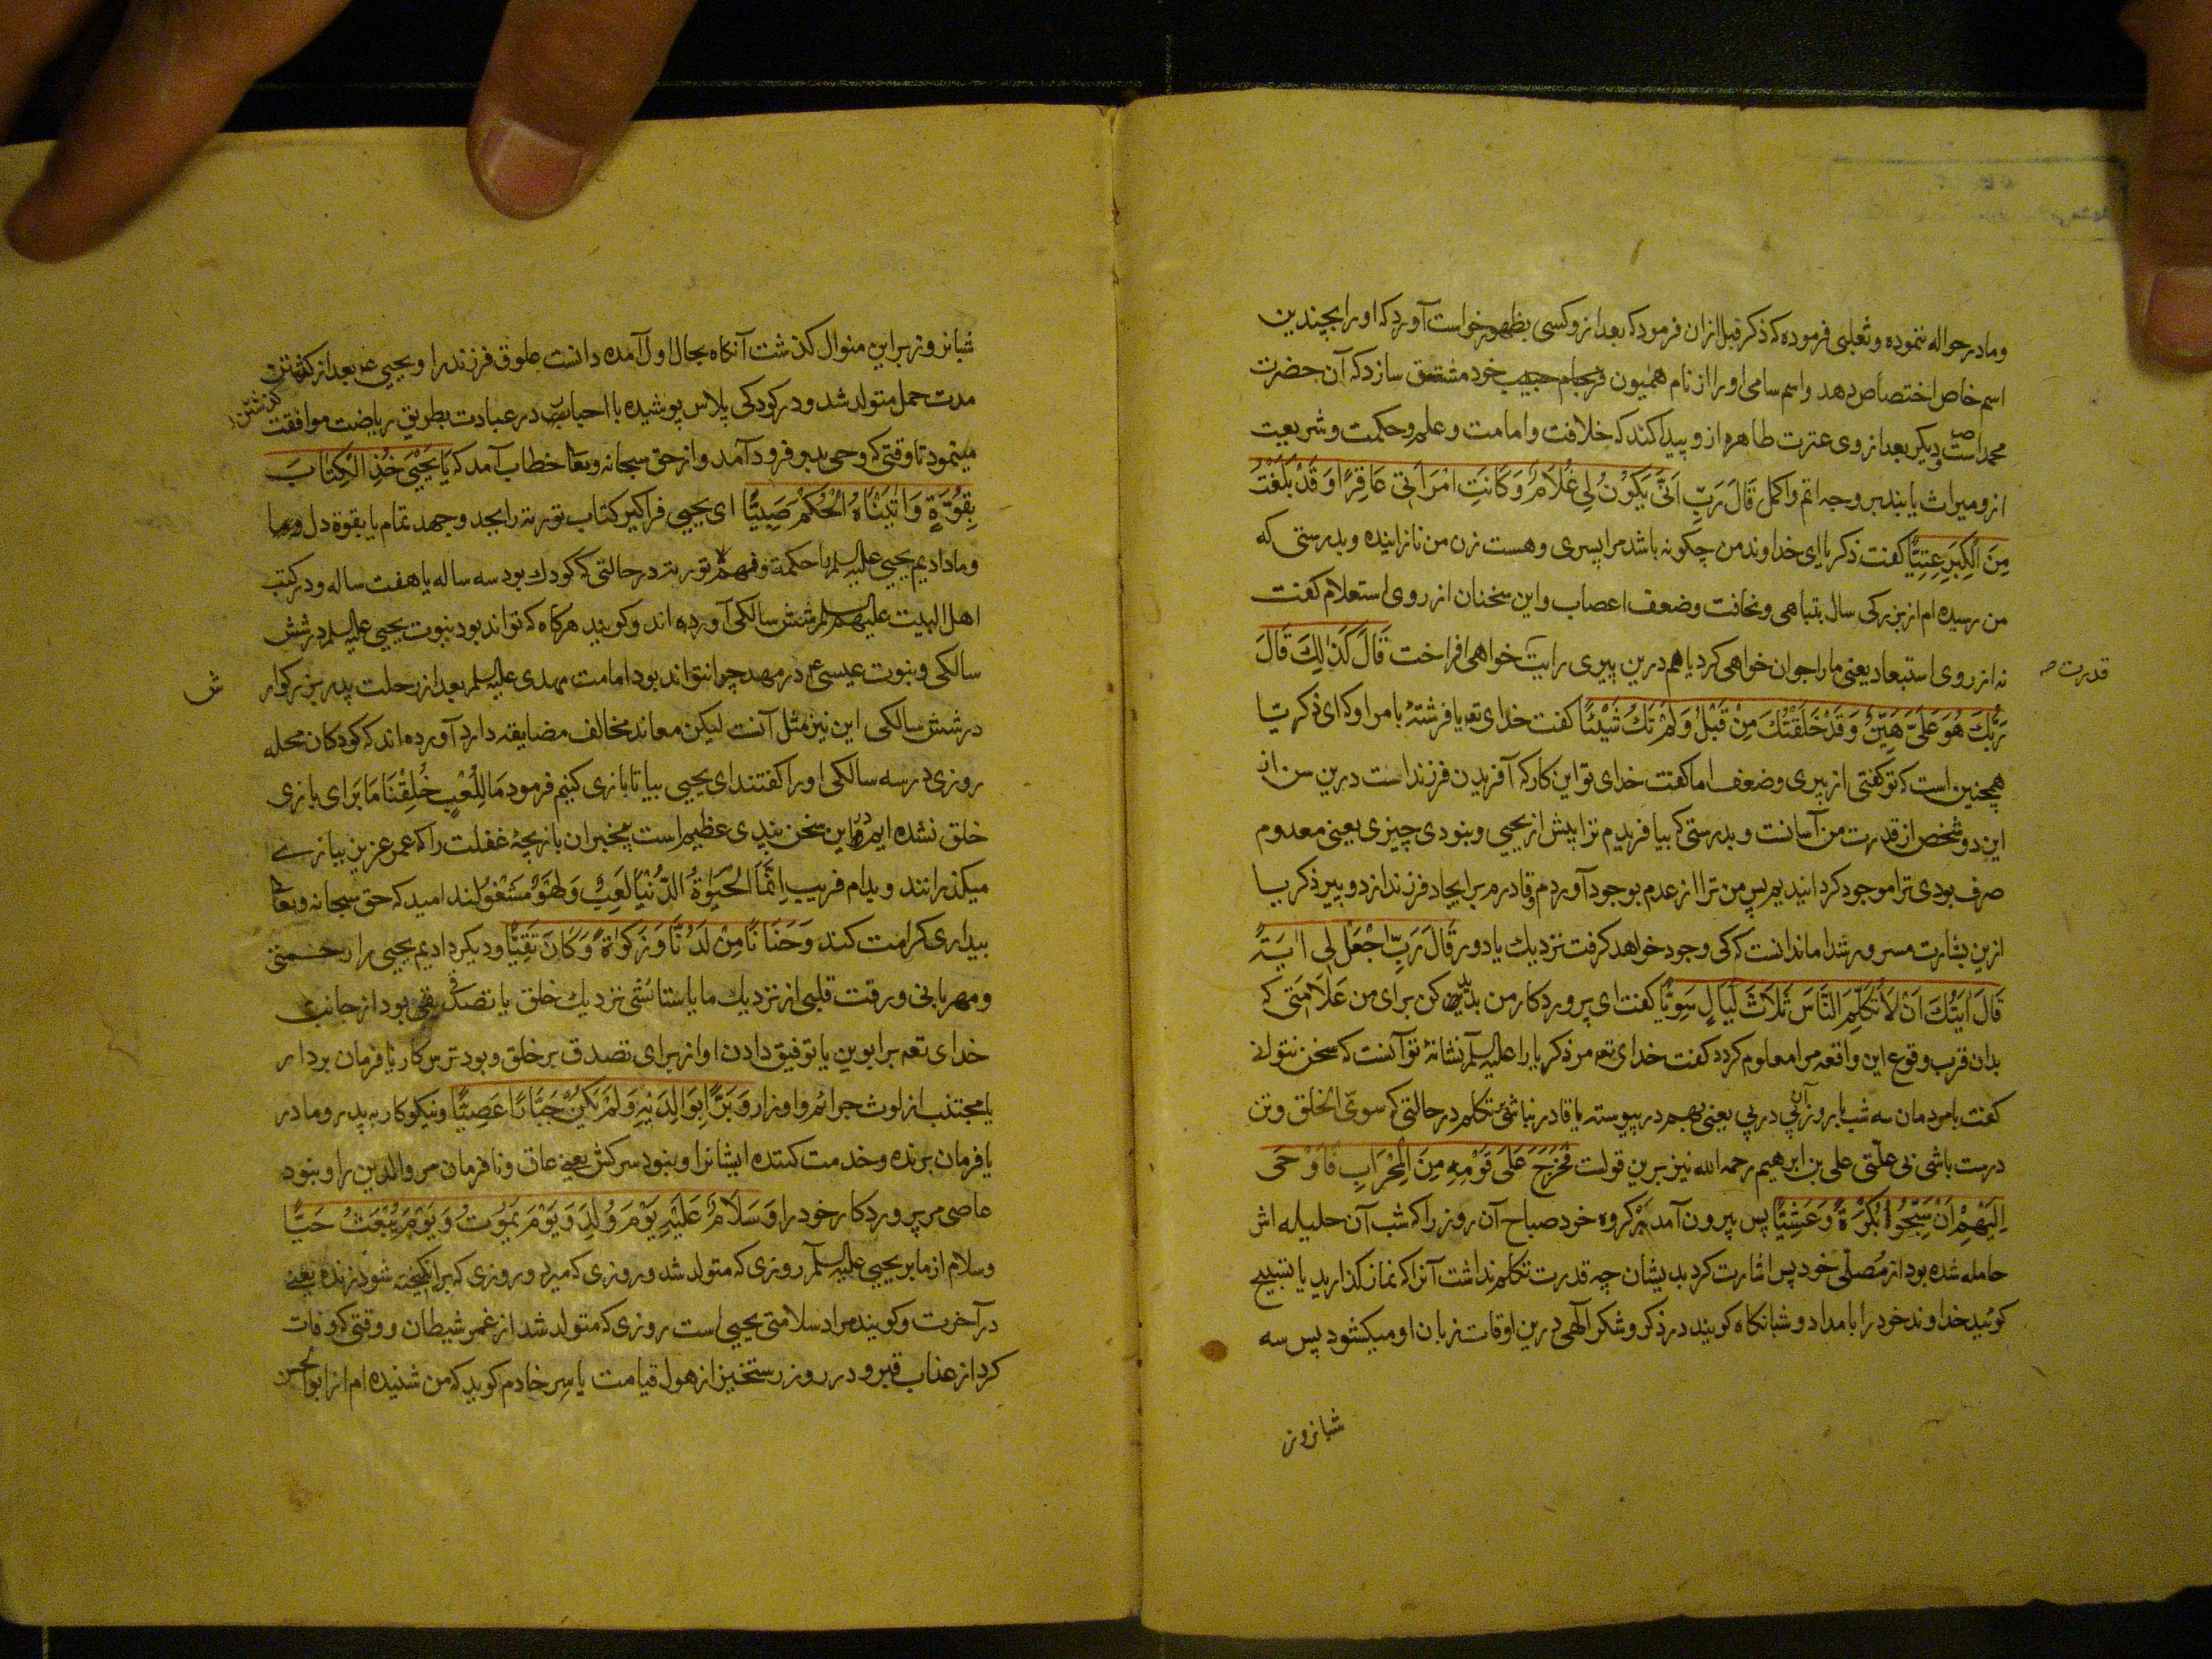 ومادر حواله ننموده وثعلبی فرموده که ذکر قبل ازان فرمود که بعد ازو کسی بظهور خواست آورد که اورا بچندین
اسم خاص اختصاص دهد واسم سامی اورا از نام همیون فرجام حبیب خود مشتق سازد که آن حضرت
محمد است ص ودیکر بعد از وی عترت طاهره ازو پیدا کند که خلافت وامامت وعلم وحکمت وشریعت
ازو میراث یابند بر وجه اتم واکمل قَالَ رَبِّ اَنّٰی یَکُوْنُ لِی غُلَامٌ وَکَانَتِ امْرَاَتِی عَاقِرًا وَقَدْ بَلَغْتُ
مِنَ الْکِبَرِ عِتِیًّا کفت ذکریا ای خداوند من چکونه باشد مرا پسری وهست زن من نازاینده وبدرستی که
من رسیده ام از بزرکی سال بتباهی ونحافت وضعف اعصاب واین سخنان از روی استعلام کفت
نه از روی استبعاد یعنی مارا جوان خواهی کرد یا هم درین پیری رایت خواهی افراخت قَالَ کَذٰلِکَ قَالَ
قدرت صه
رَبُّکَ هُوَ عَلَیَّ هَیِّنٌ وَقَدْ خَلَقْتُکَ مِنْ قَبْلُ وَلَمْ تَکُ شَیْئًا کفت خدای تعه یا فرشته بامر او که ای ذکریا
همچنین است که تو کفتی از پیری وضعف اما کفت خدای تو این کار که آفریدن فرزند است درین سن از
این دو شخص از قدرت من آسانت وبدرستی که بیافریدم ترا پیش از یحیی ونبودی چیزی یعنی معدوم
صرف بودی ترا موجود کردانیدیم پس من ترا از عدم بوجود آوردم وقادرم بر ایجاد فرزند از دو پیر ذکریا
ازین بشارت مسرور شد اما ندانست که کی وجود خواهد کرفت نزدیك یا دور قَالَ رَبِّ اجْعَلْ لِی اٰیَةً
قَالَ اٰیَتُکَ اَنْ لَا تُکَلِّمَ النَّاسَ ثَلَاثَ لَیَالٍ سَوِیًّا کفت ای پروردکار من پدید کن برای من علامتی که
بدان قرب وقوع این واقعه مرا معلوم کردد کفت خدای تعه مر ذکریا را علیه السلم نشانهٔ تو آنست که سخن نتوانی
کفت بامردمان سه شب با روز آن پی درپی یعنی بهم در پیوسته یا قادر نباشی بتکلم در حالتی که سویّ الخلق وتن
درست باشی بی علتی علی بن ابرهیم رحمه الله نیز برین قولست فَخَرَجَ عَلَی قَوْمِهِ مِنَ الْمِحْرَابِ فَاَوْحَی
اِلَیْهِمْ اَنْ سَبِّحُوا بُکْرَةً وَعَشِیًّا پس بیرون آمد بر کروه خود صباح آن روز را که شب آن حلیله اش
حامله شده بود از مُصلّی خود پس اشارت کرد بدیشان چه قدرت تکلم نداشت آنرا که نماز کذارید یا تسبیح
کوئید خداوند خود را بامداد وشبانکاه کویند در ذکر وشکر الهی درین اوقات زبان او میکشود پس سه
شبانروز
شبانروز بر این منوال کذشت آنکاه بحال اول آمده دانست علوق فرزند را ویحیی عه بعد از کذشتن
مدت حمل متولد شد ودر کودکی پلاس پوشیده با احبار در عبادت بطریق ریاضت موافقت
مینمود تا وقتی که وحی بدو فرود آمد واز حق سبحانه وتعا خطاب آمد که یَا یَحْیٰی خُذِ الْکِتَابَ
بِقُوَّةٍ وَاٰتَیْنَاهُ الْحُکْمَ صَبِیًّا ای یحیی فراکیر کتاب توریة را بجد وجهد تمام یا بقوة دل
ومادادیم یحیی علیه السلم را حکمة وفهم توریة در حالتی که کودك بود سه ساله یا هفت ساله ودر کتب
اهل البیت علیهم السلم شش سالکی آورده اند وکویند هرکاه که تواند بود نبوت یحیی علیه السلم در شش
سالکی ونبوت عیسی عم در مهد چرا نتواند بود امامت مهدی علیه السلم بعد از رحلت پدر بزرکوار
ش
در شش سالکی این نیز مثل آنست لیکن معاند مخالف مضایقه دارد آورده اند که کودکان محله
روزی در سه سالکی اورا کفتند ای یحیی بیا تا بازی کنیم فرمود مَا لِلَّعْبِ خُلِقْنَا ما برای بازی
خلق نشده ایم در این سخن پندی عظیم است بیخبران بازیچهٔ غفلت را که عمر عزیز ببازی
میکذرانند وبدام فریب اِنَّمَا الْحَیٰوةُ الدُّنْیَا لَعِبٌ وَلَهْوٌ مشغولند امید که حق سبحانه وتعا
بیداری کرامت کند وَحَنَانًا مِنْ لَدُنَّا وَزَکٰوةً وَکَانَ تَقِیًّا ودیکر دادیم یحیی را رحمتی
ومهربانی ورقت قلبی از نزدیك ما یا ستائشی نزدیك خلق یا تصدقی بود از جانب
خدای تعه بر ابوین یا توفیق دادن او از برای تصدق بر خلق وبود ترس کار یا فرمان بردار
یا مجتنب از لوث جرائم واوزار وَبَرًّا بِوَالِدَیْهِ وَلَمْ یَکُنْ جَبَّارًا عَصِیًّا ونیکوکار به پدر ومادر
یا فرمان برنده وخدمت کننده ایشانرا ونبود سرکش یعنی عاق ونافرمان مر والدین را ونبود
عاصی مر پروردکار خود را وَسَلَامٌ عَلَیْهِ یَوْمَ وُلِدَ وَیَوْمَ یَمُوتُ وَیَوْمَ یُبْعَثُ حَیًّا
وسلام از ما بر یحیی علیه السلم روزی که متولد شد وروزی که میرد وروزی که برانکیخته شود زنده یعنی
در آخرت وکویند مراد سلامتی یحیی است روزی که متولد شد از غمز شیطان ووقتی که وفات
کرد از عذاب قبر ودر روز رستخیز از هول قیامت یاسر خادم کوید که من شنیده ام از ابو الحسن